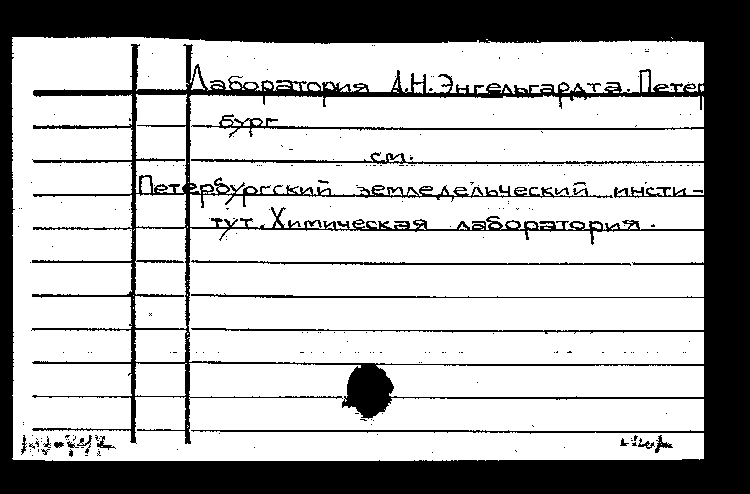 Лаборатория А.Н. Энгельгардта. Петер
бург
см.
Петербургский земледельческий инсти-
тут. Химическая лаборатория.